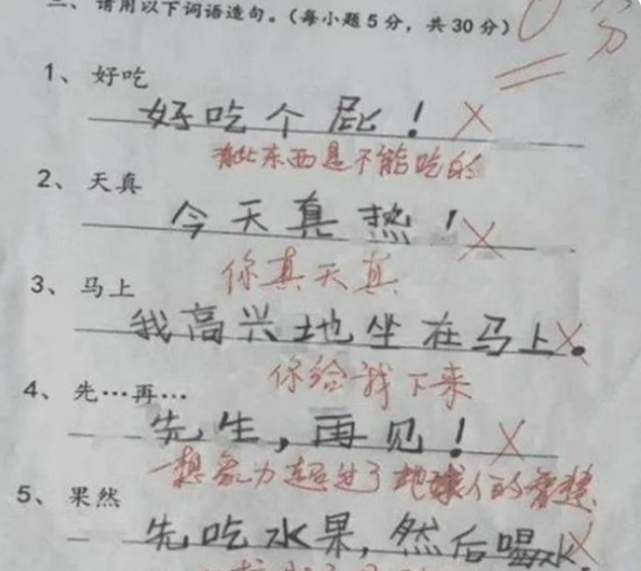 请用以下词语造句。(每小题5分，共30分)
0分
1、好吃
好吃个屁！
有些东西是不能吃的
2、天真
今天真热！
你真天真
3、马上
我高兴地坐在马上。
你给我下来
4、先…再…
先生，再见！
想象力超过了地球人的智慧
5、果然
先吃水果，然后喝水.